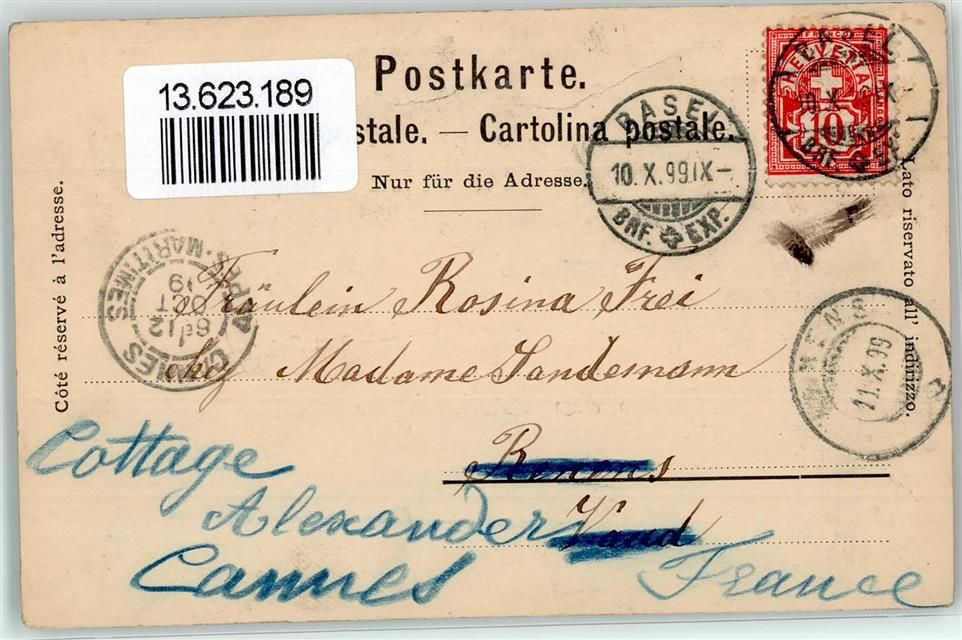 13.623.189
Postkarte.
stale. — Cartolina postale.
Nur für die Adresse.
Côté réservé à l'adresse.
Lato riservato all' indirizzo.
HELVETIA
10
BASEL
10. X. 99. IX –
BRF. EXP.
CANNES
ALPES MARITIMES
6E 12
OCT
RENENS
11. X. 99
Fräulein Rosina Frei
chez Madame Sandemann
Renens
Vaud
Cottage
Alexander
Cannes France